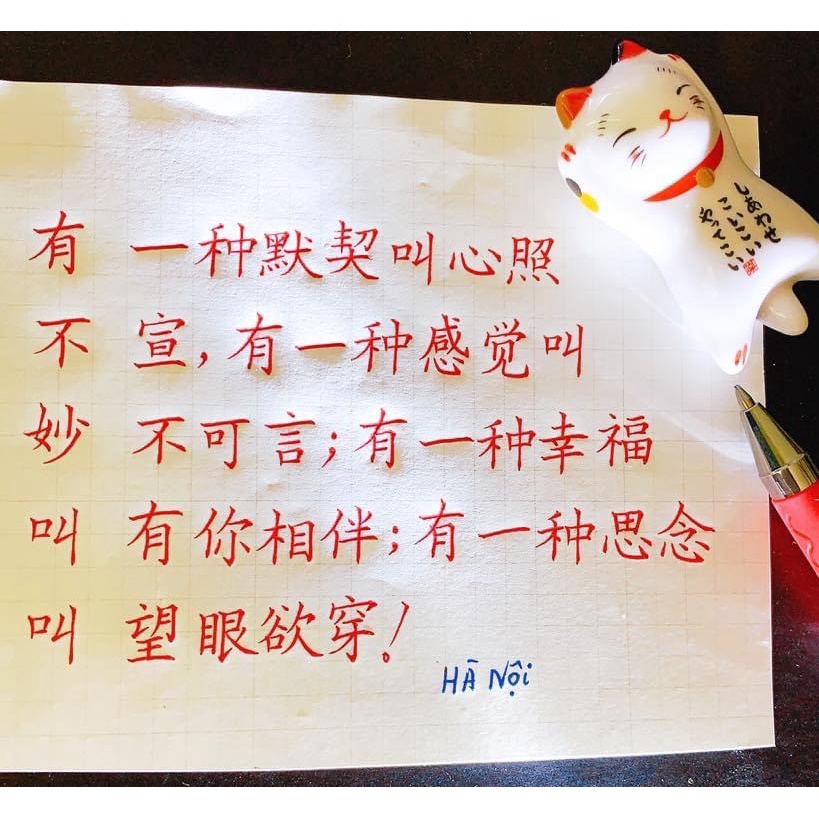 有 一种默契叫心照
不 宣,有一种感觉叫
妙 不可言;有一种幸福
叫 有你相伴;有一种思念
叫 望眼欲穿!
HÀ Nội
しあわせ
こいこい
やってこい